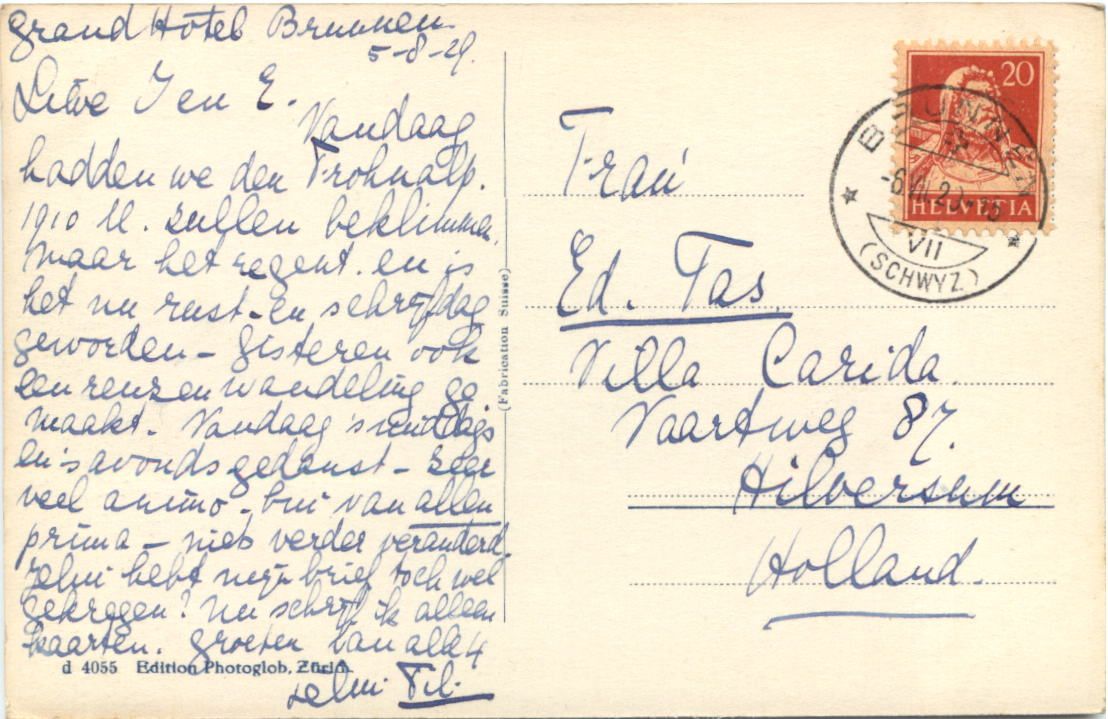 Grand Hôtel Brunnen
5-8-29.
Lieve J en E.
Vandaag
hadden we den Frohnalp.
1910 M. zullen beklimmen.
Maar het regent. en is
het nu rust-en schrijfdag
geworden - Gisteren ook
een reuzen wandeling ge
maakt. Vandaag 's middags
en 's avonds gedanst - zeer
veel animo - bui van allen
prima - niets verder veranderd.
hebt mijn brief toch wel
gekregen? Nu schrijf ik alleen
kaarten. Groeten van alle 4
d 4055 Edition Photoglob, Zürich.
(Fabrication Suisse)
20
HELVETIA
BRUNNEN
VII
(SCHWYZ)
Frau
Ed. Tas
Villa Carida.
Vaartweg 87.
Hilversum
Holland.